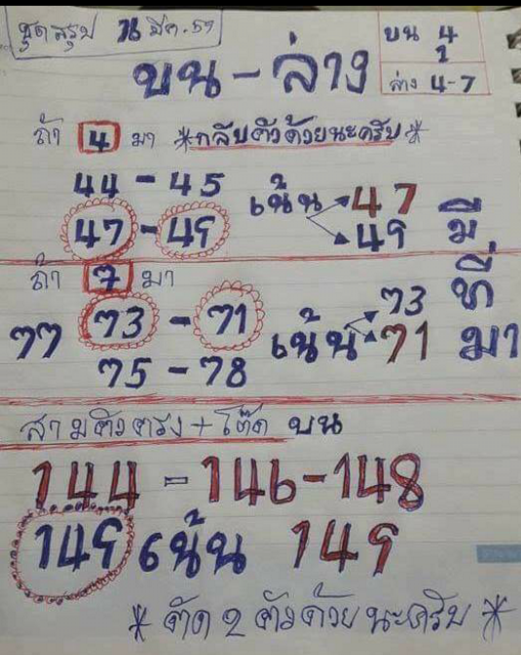 ชุดสรุป 16 มีค. 59
บน 4
1
ล่าง 4-7
บน - ล่าง
ถ้า 4 มา *กลับตัวด้วยนะครับ*
44 - 45
47 - 49
เน้น 47
49
ถ้า 7 มา
77 73 - 71
75 - 78
เน้น 73
71
มี
ที่
มา
สามตัวตรง + โต๊ด บน
144 - 146 - 148
149 เน้น 149
* ตัด 2 ตัวด้วยนะครับ *